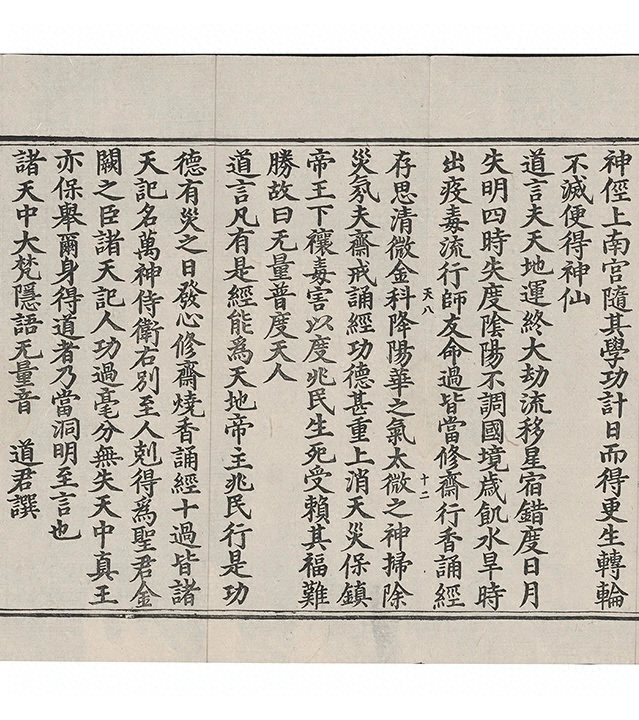 神徑上南宮隨其學功計日而得更生轉輪
不滅便得神仙
道言夫天地運終大劫流移星宿錯度日月
失明四時失度陰陽不調國境歲飢水旱時
出疫毒流行師友命過皆當修齋行香誦經
天八 十二
存思清微金科降陽華之氣太微之神掃除
災氛夫齋戒誦經功德甚重上消天災保鎮
帝王下禳毒害以度兆民生死受賴其福難
勝故曰无量普度天人
道言凡有是經能為天地帝主兆民行是功
德有災之日發心修齋燒香誦經十過皆諸
天記名萬神侍衛右別至人剋得為聖君金
闕之臣諸天記人功過毫分無失天中真王
亦保舉爾身得道者乃當洞明至言也
諸天中大梵隱語无量音 道君譔